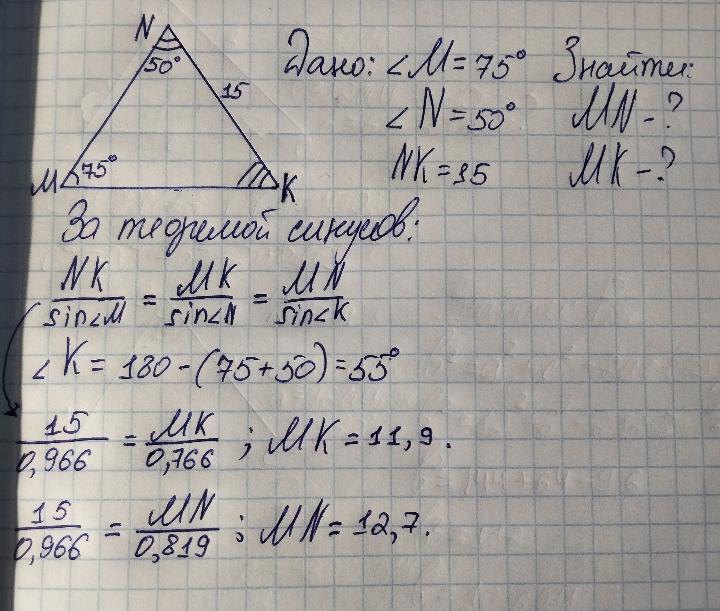 N
50°
15
M 75°
K
Дано: ∠M = 75° Знайти:
∠N = 50° MN - ?
NK = 15 MK - ?
За теоремой синусов:
NK/sin∠M = MK/sin∠N = MN/sin∠K
∠K = 180 - (75 + 50) = 55°
15/0,966 = MK/0,766 ; MK = 11,9.
15/0,966 = MN/0,819 ; MN = 12,7.